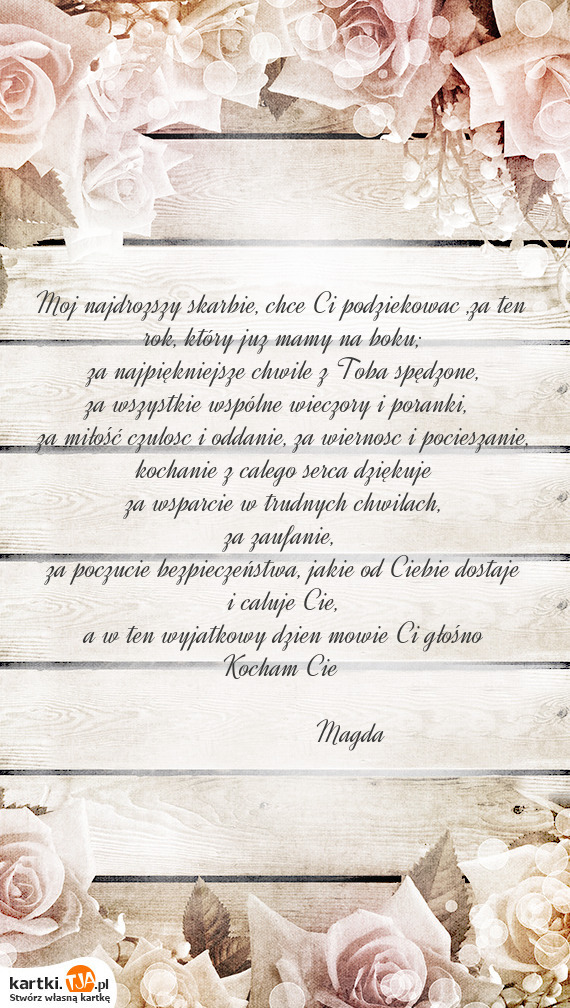 Moj najdrozszy skarbie, chce Ci podziekowac ,za ten
rok, który juz mamy na boku;
za najpiękniejsze chwile z Toba spędzone,
za wszystkie wspólne wieczory i poranki,
za miłość czulosc i oddanie, za wiernosc i pocieszanie,
kochanie z calego serca dziękuje
za wsparcie w trudnych chwilach,
za zaufanie,
za poczucie bezpieczeństwa, jakie od Ciebie dostaje
i caluje Cie,
a w ten wyjatkowy dzien mowie Ci głośno
Kocham Cie
Magda
kartki.TJA.pl
Stwórz własną kartkę